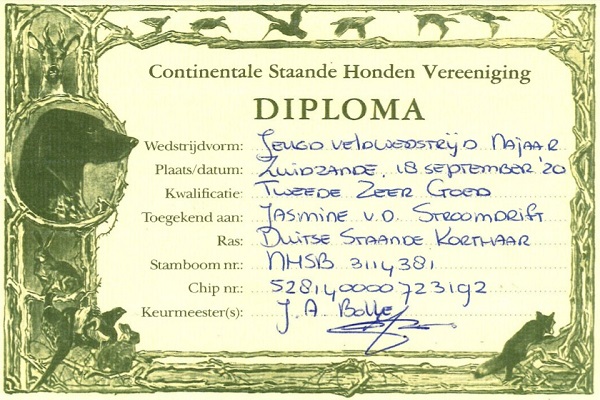 Continentale Staande Honden Vereeniging
DIPLOMA
Wedstrijdvorm: Jeugd veldwedstrijd Najaar
Plaats/datum: Zuidzande, 18 september '20
Kwalificatie: Tweede Zeer Goed
Toegekend aan: Jasmine v.d. Stroomdrift
Ras: Duitse Staande Korthaar
Stamboom nr.: NHSB 3114381
Chip nr.: 528140000723192
Keurmeester(s): J. A. Bolle